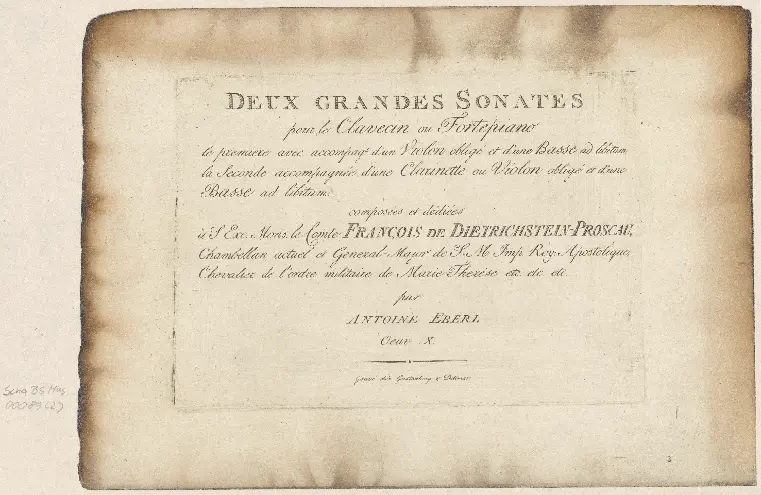 DEUX GRANDES SONATES
pour le Clavecin ou Fortepiano
la premiere avec accompag! d'un Violon obligé et d'une Basse ad libitum
la Seconde accompagnée d'une Clarinette ou Violon obligé et d'une
Basse ad libitum.
composées et dediées
à S. Exc. Mons. le Comte FRANÇOIS DE DIETRICHSTEIN-PROSCAU,
Chambellan actuel et General-Major de S. M. Imp. Roy. Apostolique,
Chevalier de l'ordre militaire de Marie Therèse etc. etc. etc.
par
ANTOINE EBERL
Oeuv. X.
gravé chés Gerstenberg & Dittmar
00083(2)